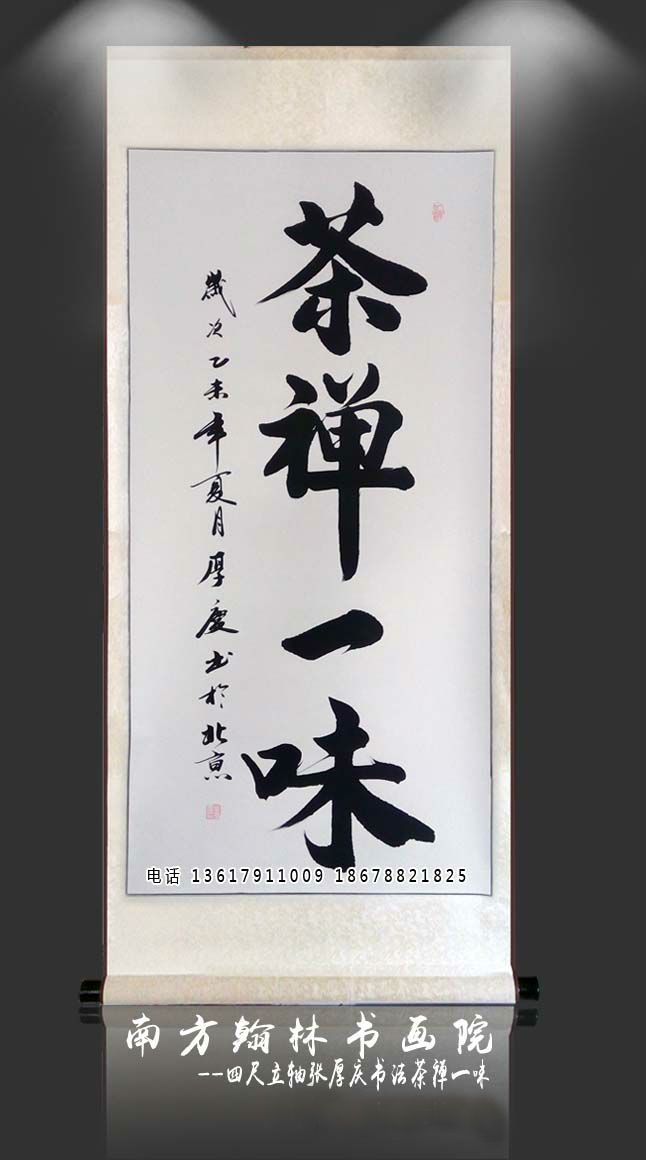 茶禅一味
歲次乙未年夏月厚慶书於北京
电话 13617911009 18678821825
南方翰林书画院
--四尺立轴张厚庆书法茶禅一味